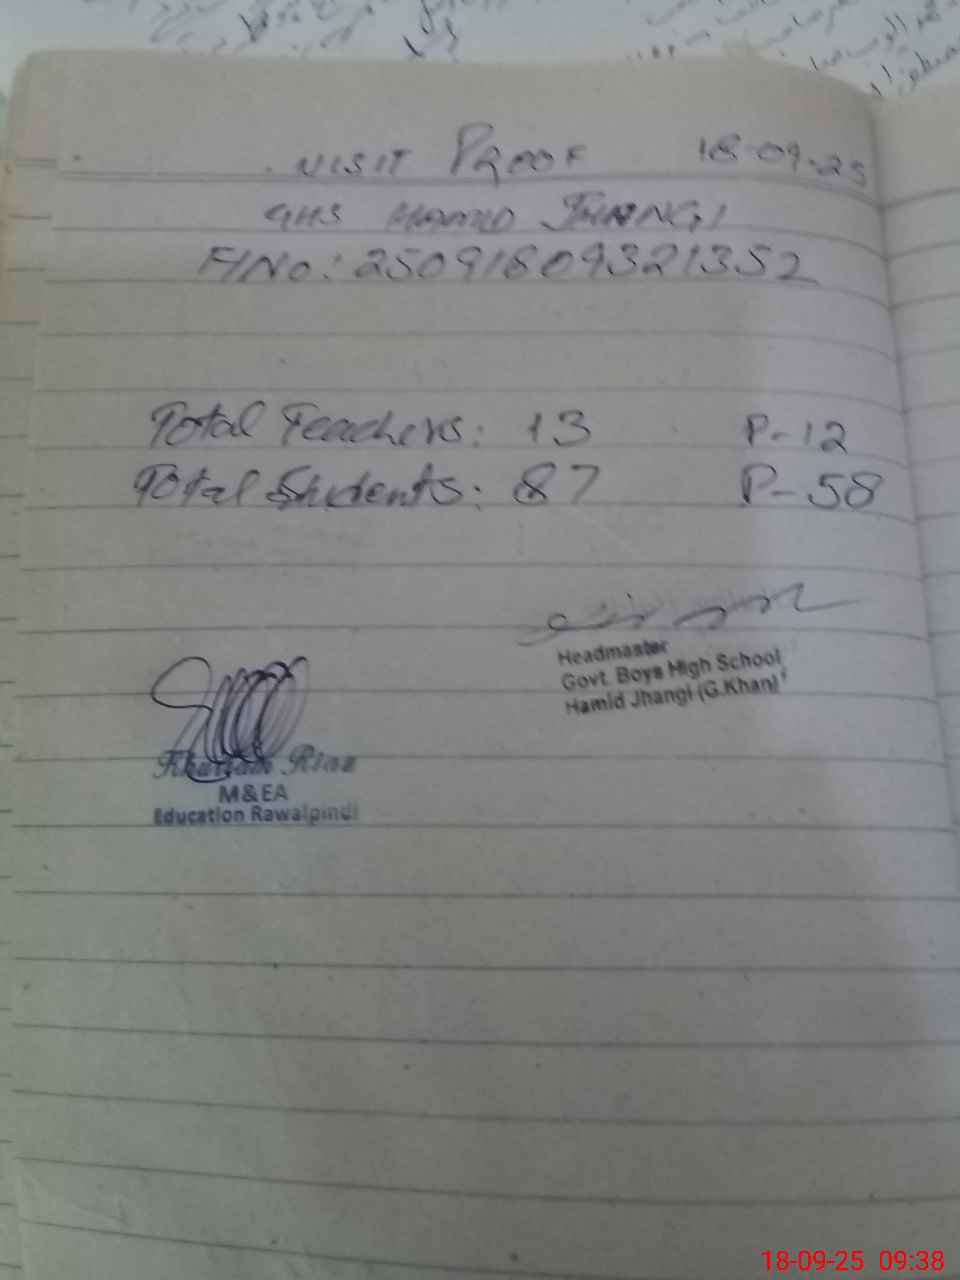 VISIT PROOF 18-09-25
GHS HAMID JHANGI
FINO: 250918093213 52
Total Teachers: 13 P-12
Total Students: 87 P-58
Headmaster
Govt. Boys High School
Hamid Jhangi (G.Khan)
Khurram Riaz
M&EA
Education Rawalpindi
18-09-25 09:38